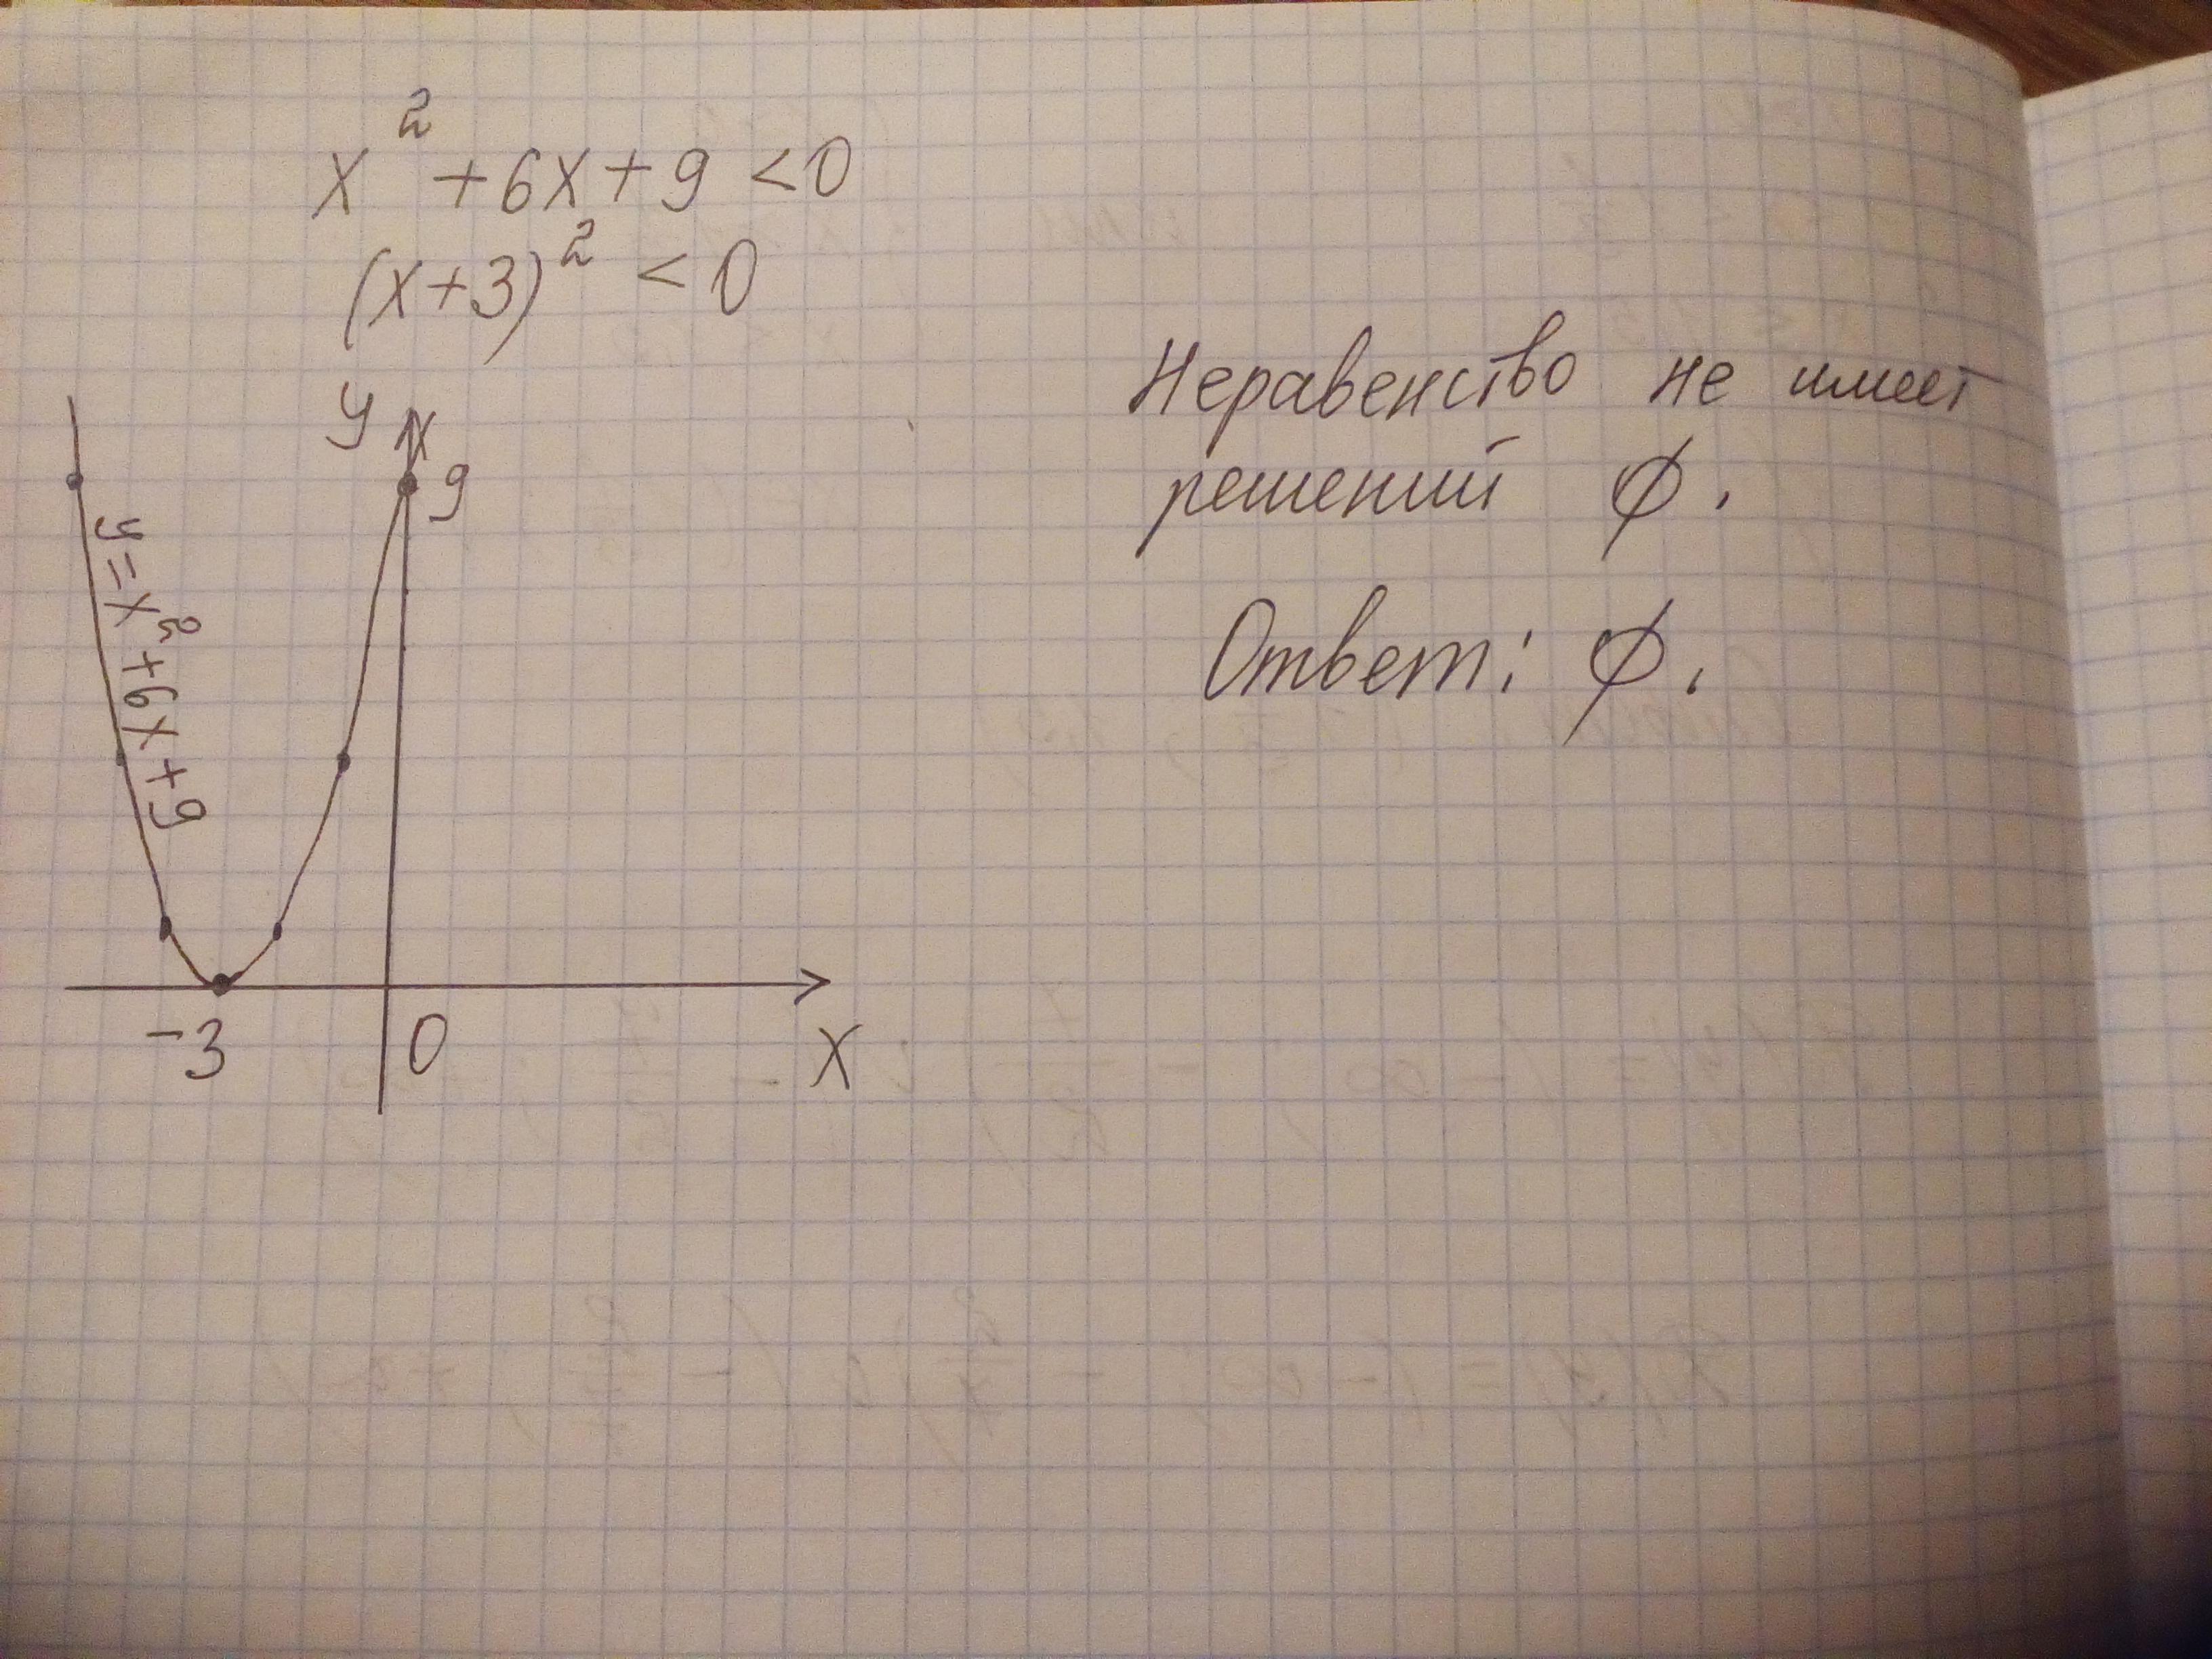 x² + 6x + 9 < 0
(x+3)² < 0
y
9
y = x² + 6x + 9
-3
0
x
Неравенство не имеет
решений ∅.
Ответ: ∅.